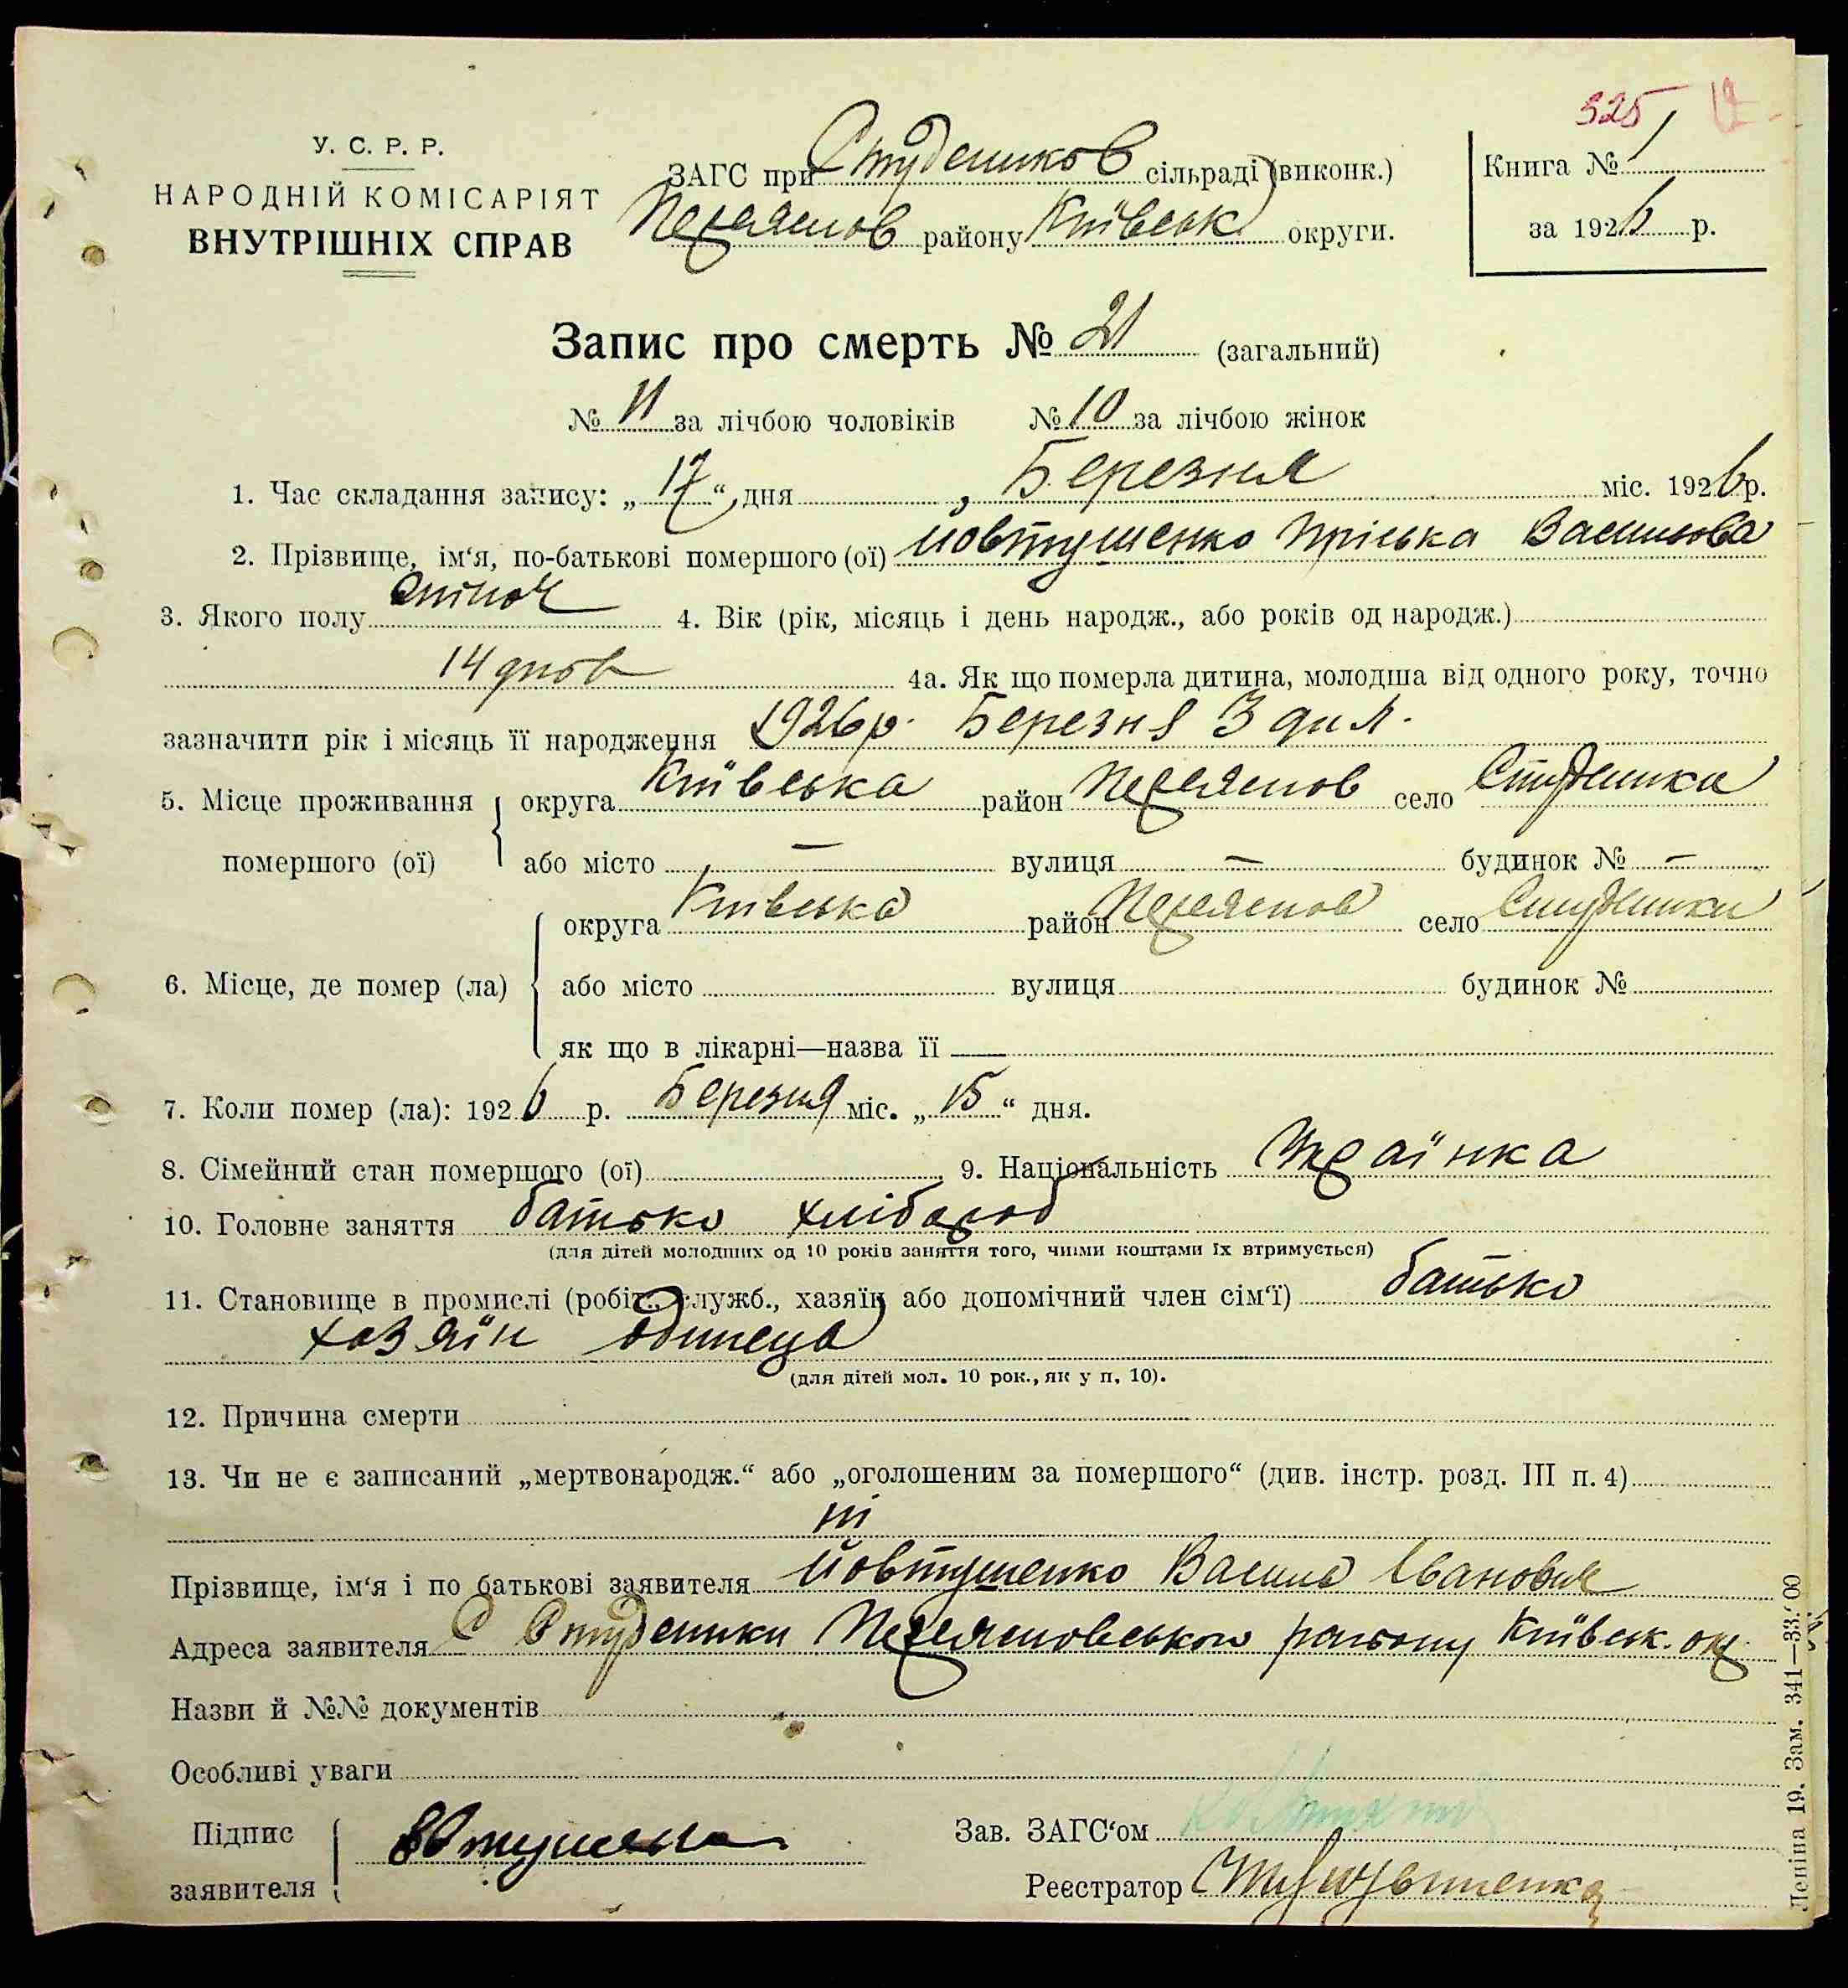 325
У. С. Р. Р.
НАРОДНІЙ КОМІСАРІЯТ
ВНУТРІШНІХ СПРАВ
ЗАГС при Студеников сільраді (виконк.)
Переяслов району Київськ округи.
Книга № 1
за 1926 р.
Запис про смерть № 21 (загальний)
№ 11 за лічбою чоловіків № 10 за лічбою жінок
1. Час складання запису: „17“ дня Березня міс. 1926 р.
2. Прізвище, ім‘я, по-батькові помершого (ої) Йовтушенко Пріська Васильова
3. Якого полу жіноч 4. Вік (рік, місяць і день народж., або років од народж.)
14 днов 4а. Як що померла дитина, молодша від одного року, точно
зазначити рік і місяць її народження 1926 р. Березня 3 дня.
5. Місце проживання помершого (ої) округа Київська район Переяслов село Студеники
або місто — вулиця — будинок № —
6. Місце, де помер (ла) округа Київська район Переяслов село Студеники
або місто вулиця будинок №
як що в лікарні—назва її —
7. Коли помер (ла): 1926 р. Березня міс. „15“ дня.
8. Сімейний стан помершого (ої) 9. Національність Українка
10. Головне заняття батько хлібороб
(для дітей молодших од 10 років заняття того, чиїми коштами їх втримується)
11. Становище в промислі (робіт., служб., хазяїн або допомічний член сім‘ї) батько
хазяїн одинец
(для дітей мол. 10 рок., як у п. 10).
12. Причина смерти
13. Чи не є записаний „мертвонародж.“ або „оголошеним за помершого“ (див. інстр. розд. III п. 4)
ні
Прізвище, ім‘я і по батькові заявителя Йовтушенко Василь Іванович
Адреса заявителя С Студеники Переясловського району Київськ. окр
Назви й №№ документів
Особливі уваги
Підпис заявителя
Зав. ЗАГС‘ом
Реєстратор
Леніна 19. Зам. 341—33.